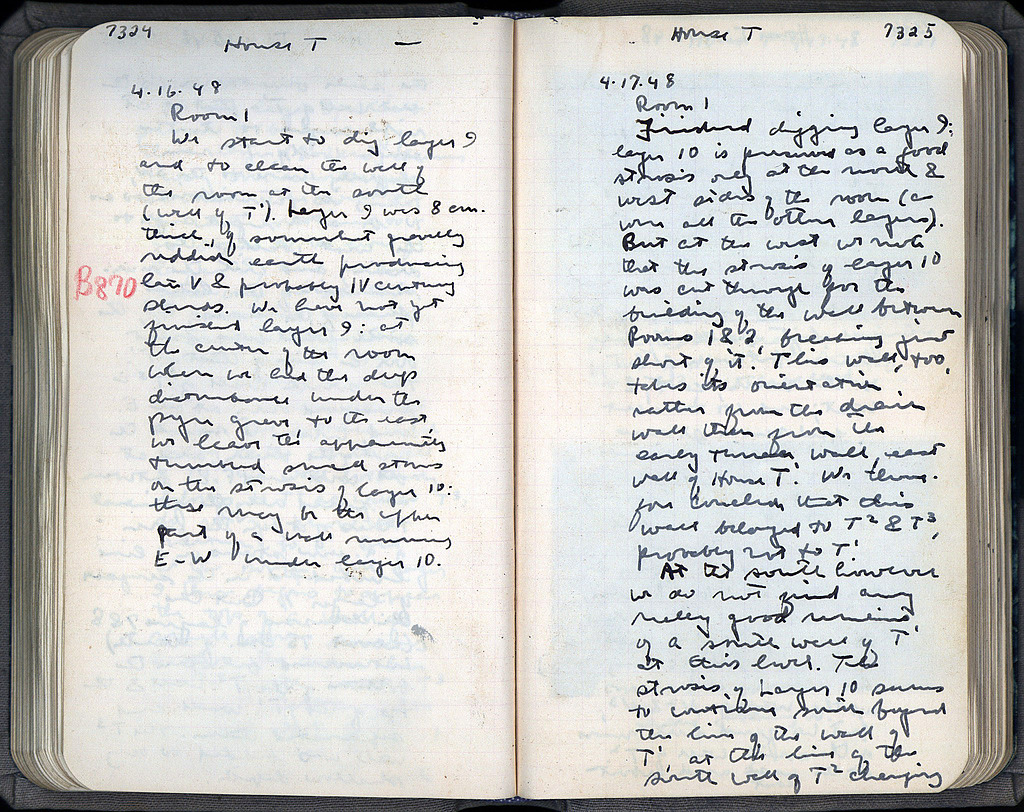 7324
House T —
4.16.48
Room 1
We start to dig layer 9
and to clean the wall of
the room at the south
(wall of T¹). Layer 9 was 8 cm.
thick, of somewhat gravelly
reddish earth producing
B870
late V & probably IV century
sherds. We have not yet
finished layer 9: at
the center of the room
where we had the deep
disturbance under the
pyre grave, to the east,
we leave the apparently
tumbled small stones
on the strosis of layer 10:
these may be the upper
part of a wall running
E-W under layer 10.
House T
7325
4.17.48
Room 1
Finished digging layer 9:
layer 10 is preserved as a good
strosis only at the north &
west sides of the room (as
were all the other layers).
But at the west we note
that the strosis of layer 10
was cut through for the
building of the wall between
Rooms 1 & 2, breaking just
short of it. This wall, too,
takes its orientation
rather from the drain
wall than from the
early threshold wall, east
wall of House T¹. We there-
fore conclude that this
wall belonged to T² & T³,
probably not to T¹.
At the south however
we do not find any
really good remains
of a south wall of T¹
at this level. The
strosis of Layer 10 seems
to continue south beyond
the line of the wall of
T¹, at the line of the
south wall of T² changing